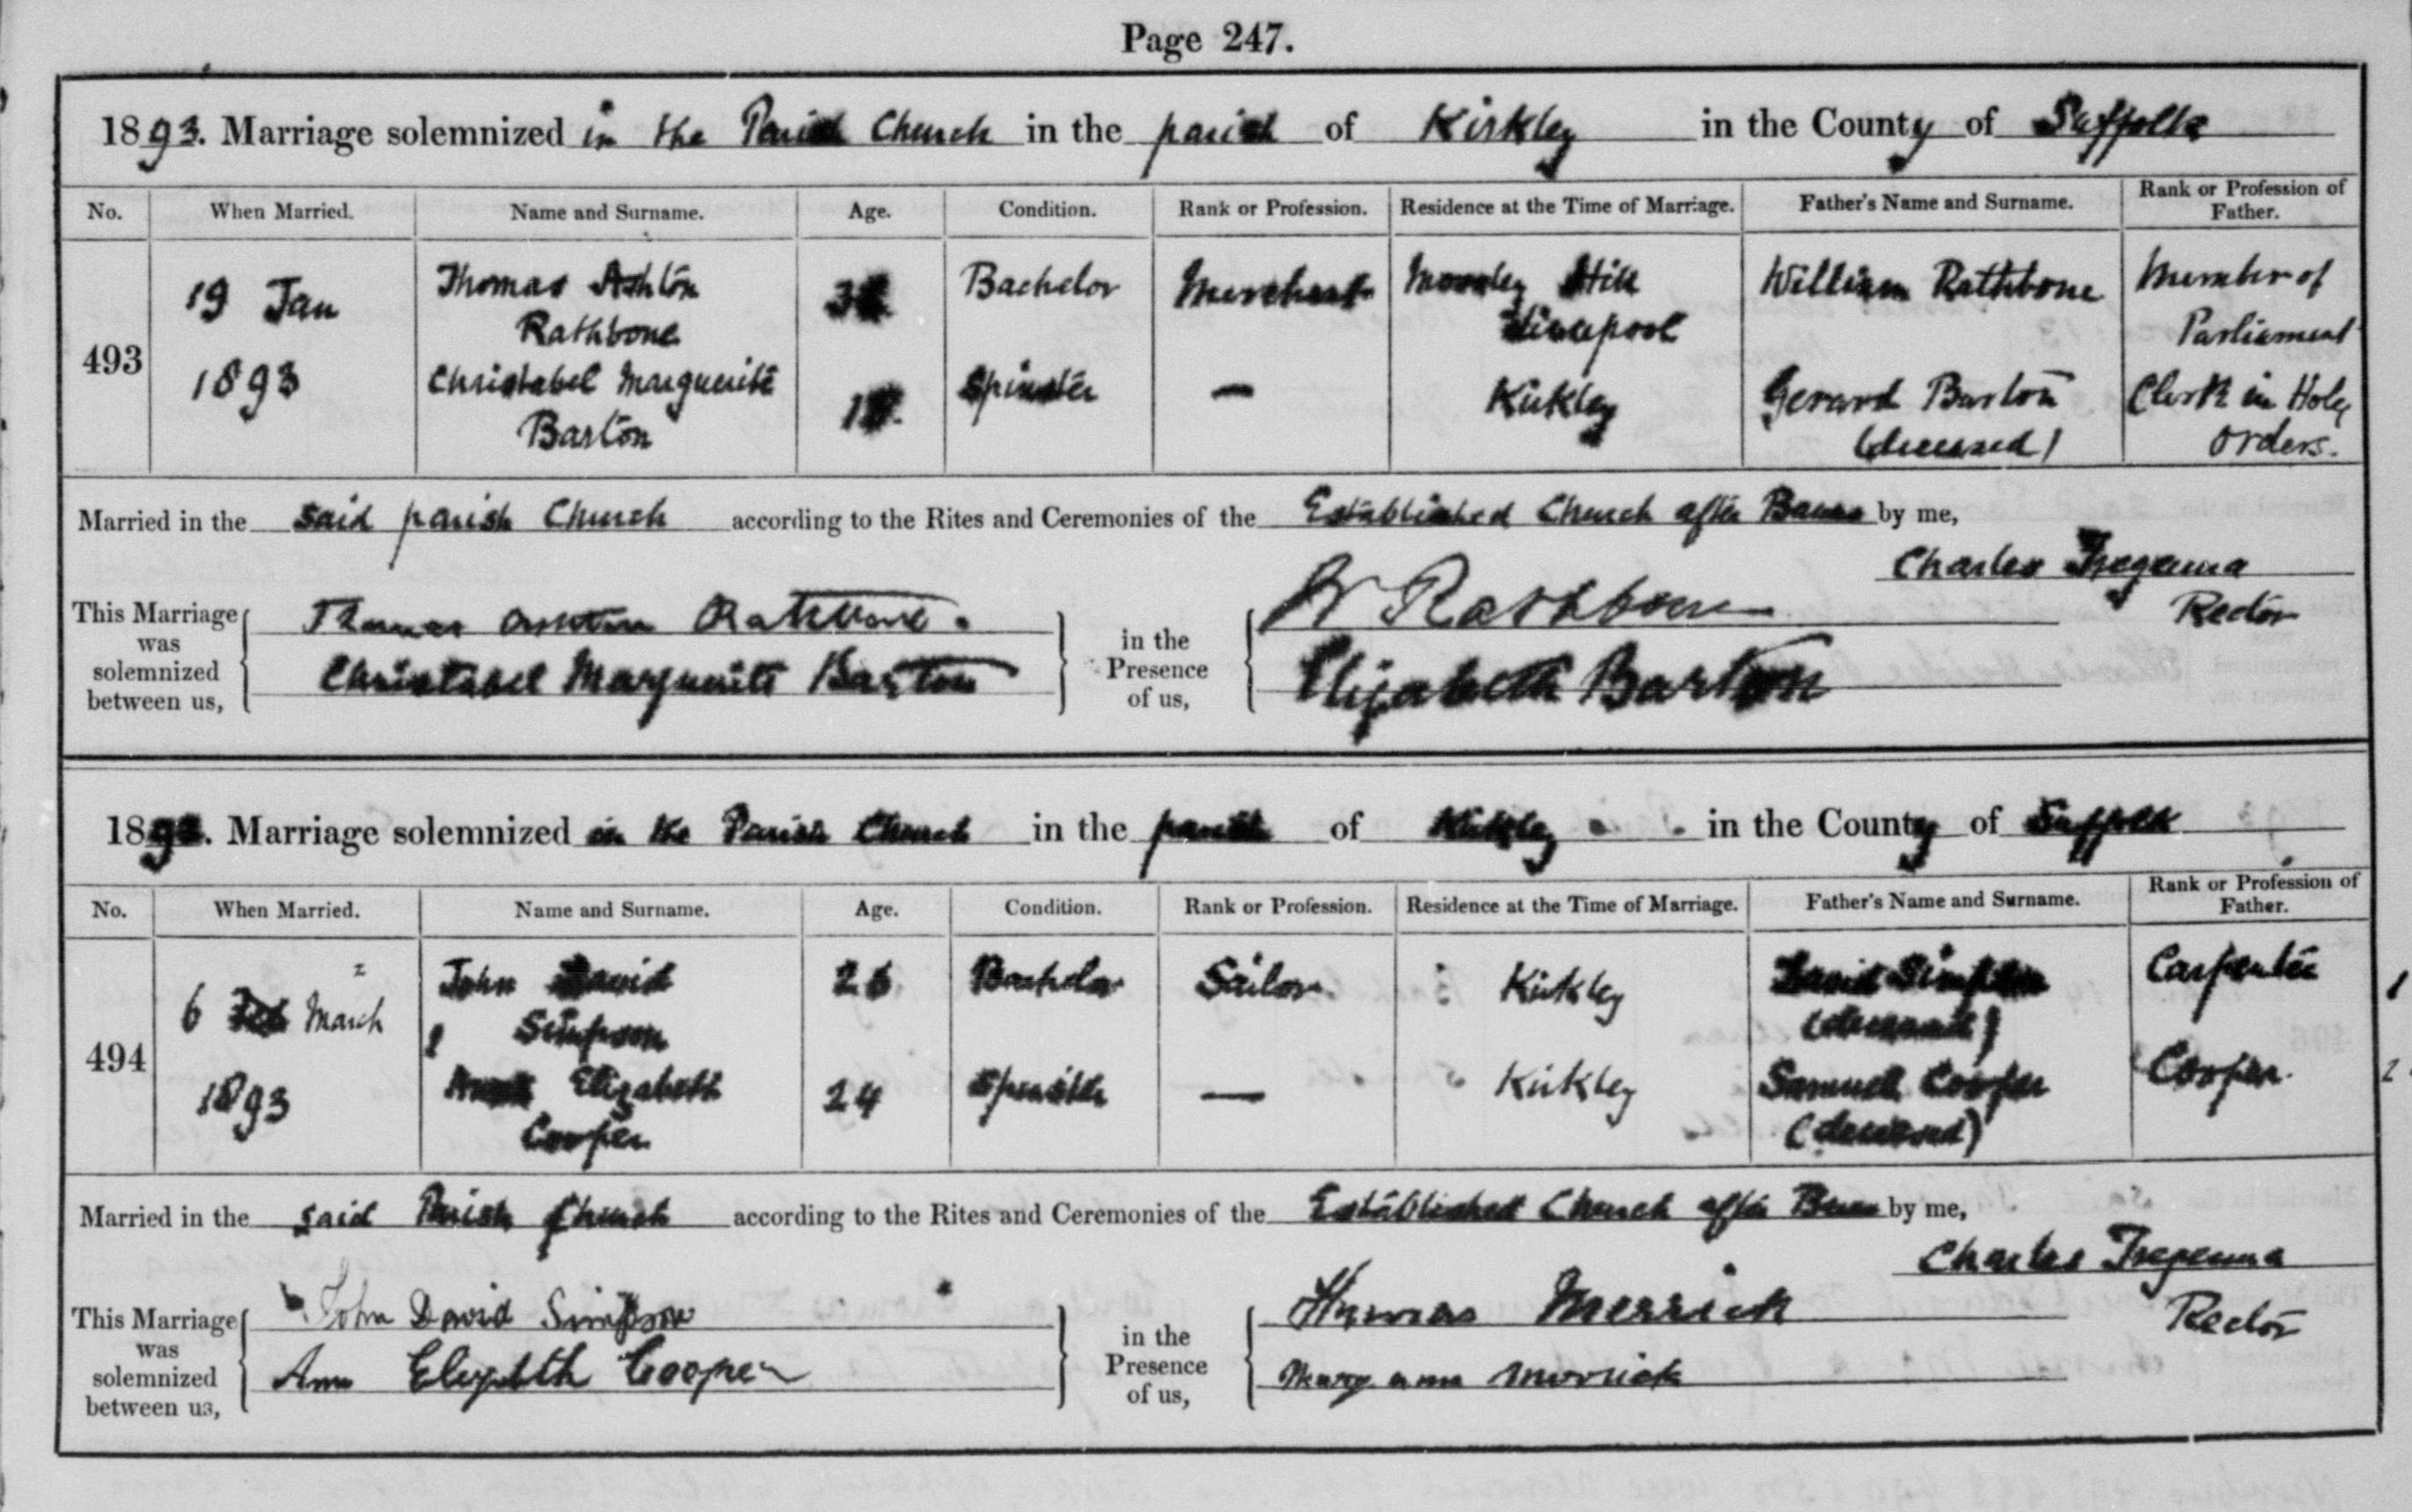 Page 247.
1893. Marriage solemnized in the Parish Church in the parish of Kirkley in the County of Suffolk
No. When Married. Name and Surname. Age. Condition. Rank or Profession. Residence at the Time of Marriage. Father's Name and Surname. Rank or Profession of Father.
493
19 Jan 1893
Thomas Ashton
Rathbone
Bachelor
Merchant
Mossley Hill
Liverpool
William Rathbone
Member of
Parliament
Christabel Marguerite
Barton
Spinster
—
Kirkley
Gerard Barton
(deceased)
Clerk in Holy
Orders.
Married in the said parish Church according to the Rites and Ceremonies of the Established Church after Banns by me,
Charles Tregenna
Rector
This Marriage was solemnized between us,
Thomas Ashton Rathbone.
Christabel Marguerite Barton
in the Presence of us,
W Rathbone
Elizabeth Barton
1893. Marriage solemnized in the Parish Church in the parish of Kirkley in the County of Suffolk
No. When Married. Name and Surname. Age. Condition. Rank or Profession. Residence at the Time of Marriage. Father's Name and Surname. Rank or Profession of Father.
494
6 Feb March
1893
John David
Simpson
26
Bachelor
Sailor
Kirkley
David Simpson
(deceased)
Carpenter
1
Elizabeth
Cooper
24
Spinster
—
Kirkley
Samuel Cooper
(deceased)
Cooper.
2
Married in the said Parish Church according to the Rites and Ceremonies of the Established Church after Banns by me,
Charles Tregenna
Rector
This Marriage was solemnized between us,
John David Simpson
Ann Elizabeth Cooper
in the Presence of us,
Thomas Merrick
Mary anna Merrick